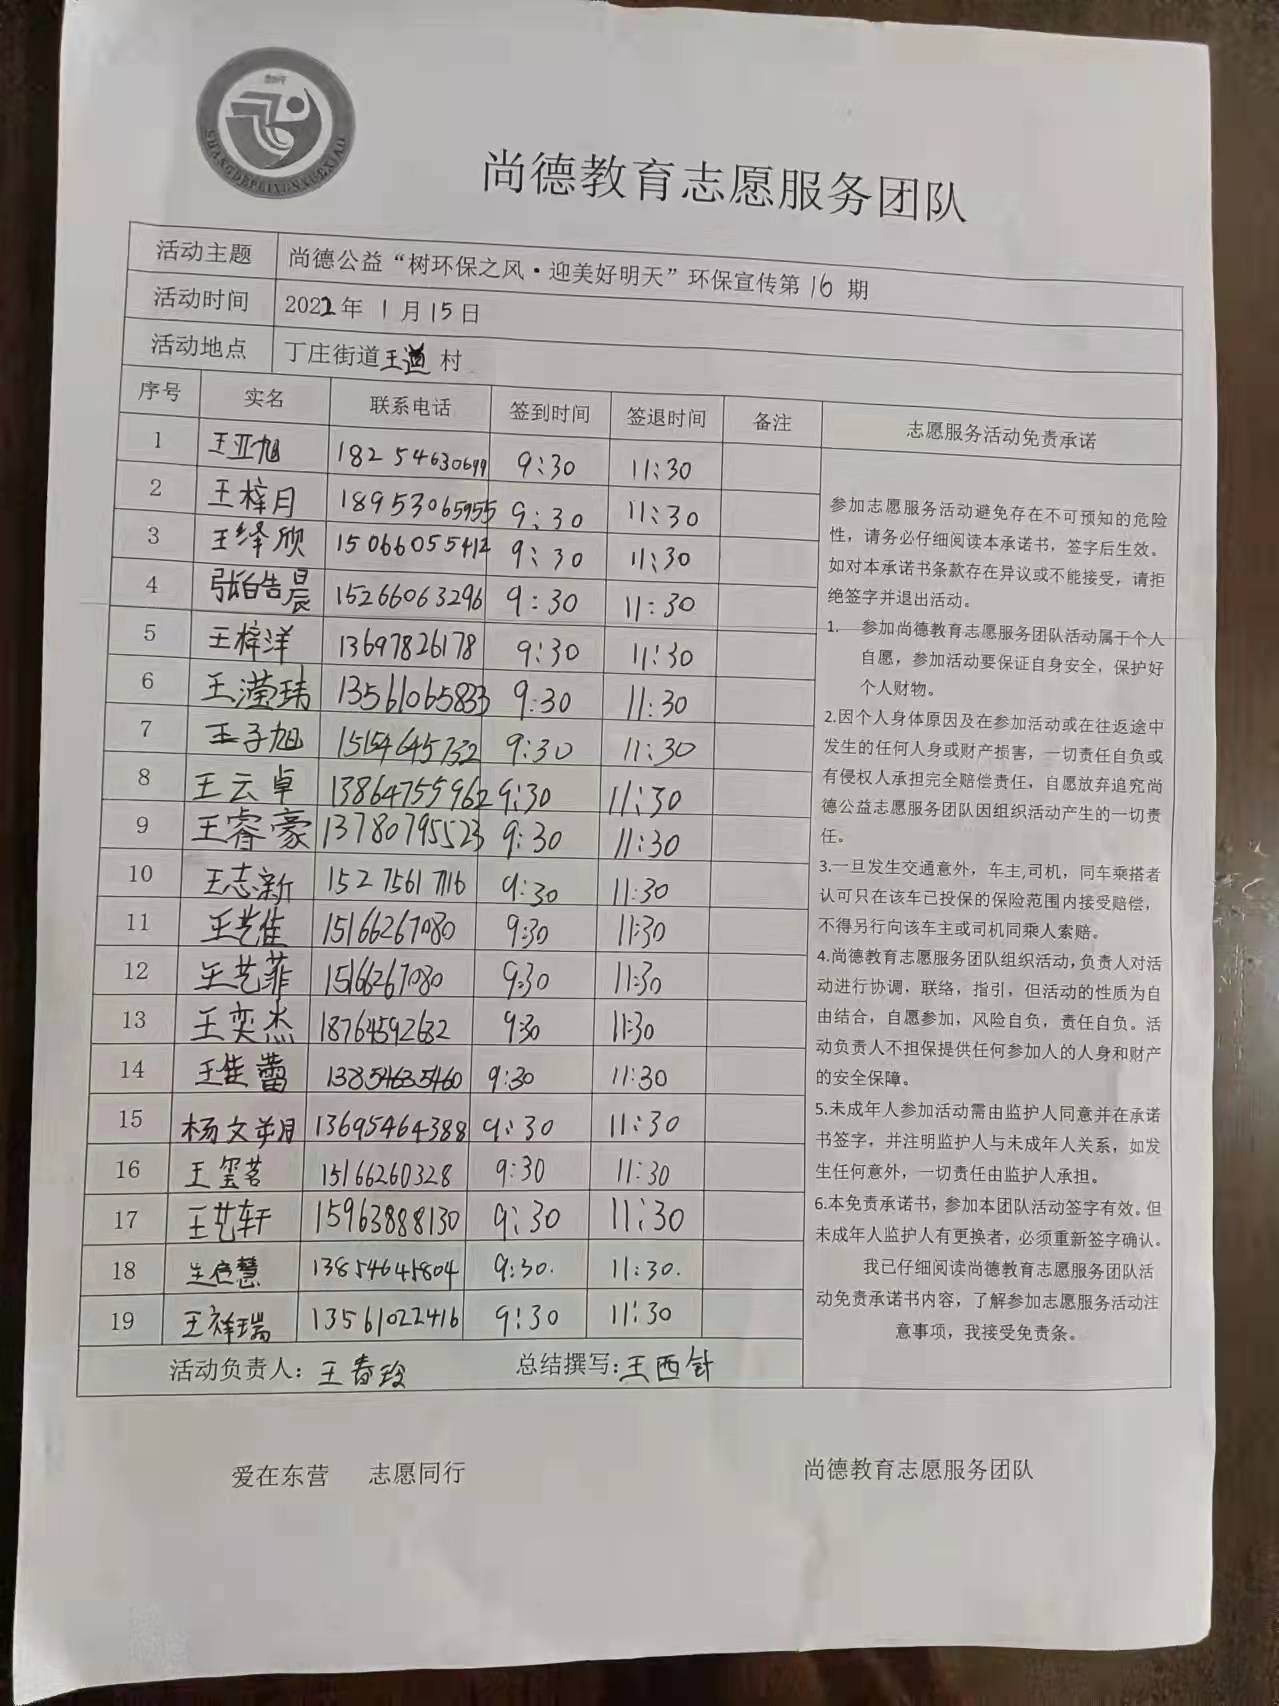 SHANGDEPEIXUNXUEXIAO
尚德教育志愿服务团队
活动主题 尚德公益“树环保之风·迎美好明天”环保宣传第16期
活动时间 2022年1月15日
活动地点 丁庄街道王道村
序号 实名 联系电话 签到时间 签退时间 备注 志愿服务活动免责承诺
1 王亚旭 18254630699 9:30 11:30
2 王梓月 18953065955 9:30 11:30
3 王绎欣 15066055412 9:30 11:30
4 张皓晨 15266063296 9:30 11:30
5 王梓洋 13697826178 9:30 11:30
6 王滢玮 13561065833 9:30 11:30
7 王子旭 15154645732 9:30 11:30
8 王云卓 13864755962 9:30 11:30
9 王睿豪 13780795523 9:30 11:30
10 王志新 15275617116 9:30 11:30
11 王艺佳 15166267080 9:30 11:30
12 王艺菲 15166267080 9:30 11:30
13 王奕杰 18764592632 9:30 11:30
14 王佳蕾 13854635460 9:30 11:30
15 杨文 13695464388 9:30 11:30
16 王玺茗 15166260328 9:30 11:30
17 王艺轩 15963888130 9:30 11:30
18 慧 13854645804 9:30. 11:30.
19 王祥瑞 13561022416 9:30 11:30
活动负责人：王春玲 总结撰写：王西
参加志愿服务活动避免存在不可预知的危险
性，请务必仔细阅读本承诺书，签字后生效。
如对本承诺书条款存在异议或不能接受，请拒
绝签字并退出活动。
1. 参加尚德教育志愿服务团队活动属于个人
自愿，参加活动要保证自身安全，保护好
个人财物。
2.因个人身体原因及在参加活动或在往返途中
发生的任何人身或财产损害，一切责任自负或
有侵权人承担完全赔偿责任，自愿放弃追究尚
德公益志愿服务团队因组织活动产生的一切责
任。
3.一旦发生交通意外，车主,司机，同车乘搭者
认可只在该车已投保的保险范围内接受赔偿，
不得另行向该车主或司机同乘人索赔。
4.尚德教育志愿服务团队组织活动,负责人对活
动进行协调．联络，指引，但活动的性质为自
由结合，自愿参加，风险自负，责任自负。活
动负责人不担保提供任何参加人的人身和财产
的安全保障。
5.未成年人参加活动需由监护人同意并在承诺
书签字，并注明监护人与未成年人关系，如发
生任何意外，一切责任由监护人承担。
6.本免责承诺书，参加本团队活动签字有效。但
未成年人监护人有更换者，必须重新签字确认。
我已仔细阅读尚德教育志愿服务团队活
动免责承诺书内容，了解参加志愿服务活动注
意事项，我接受免责条。
爱在东营 志愿同行
尚德教育志愿服务团队